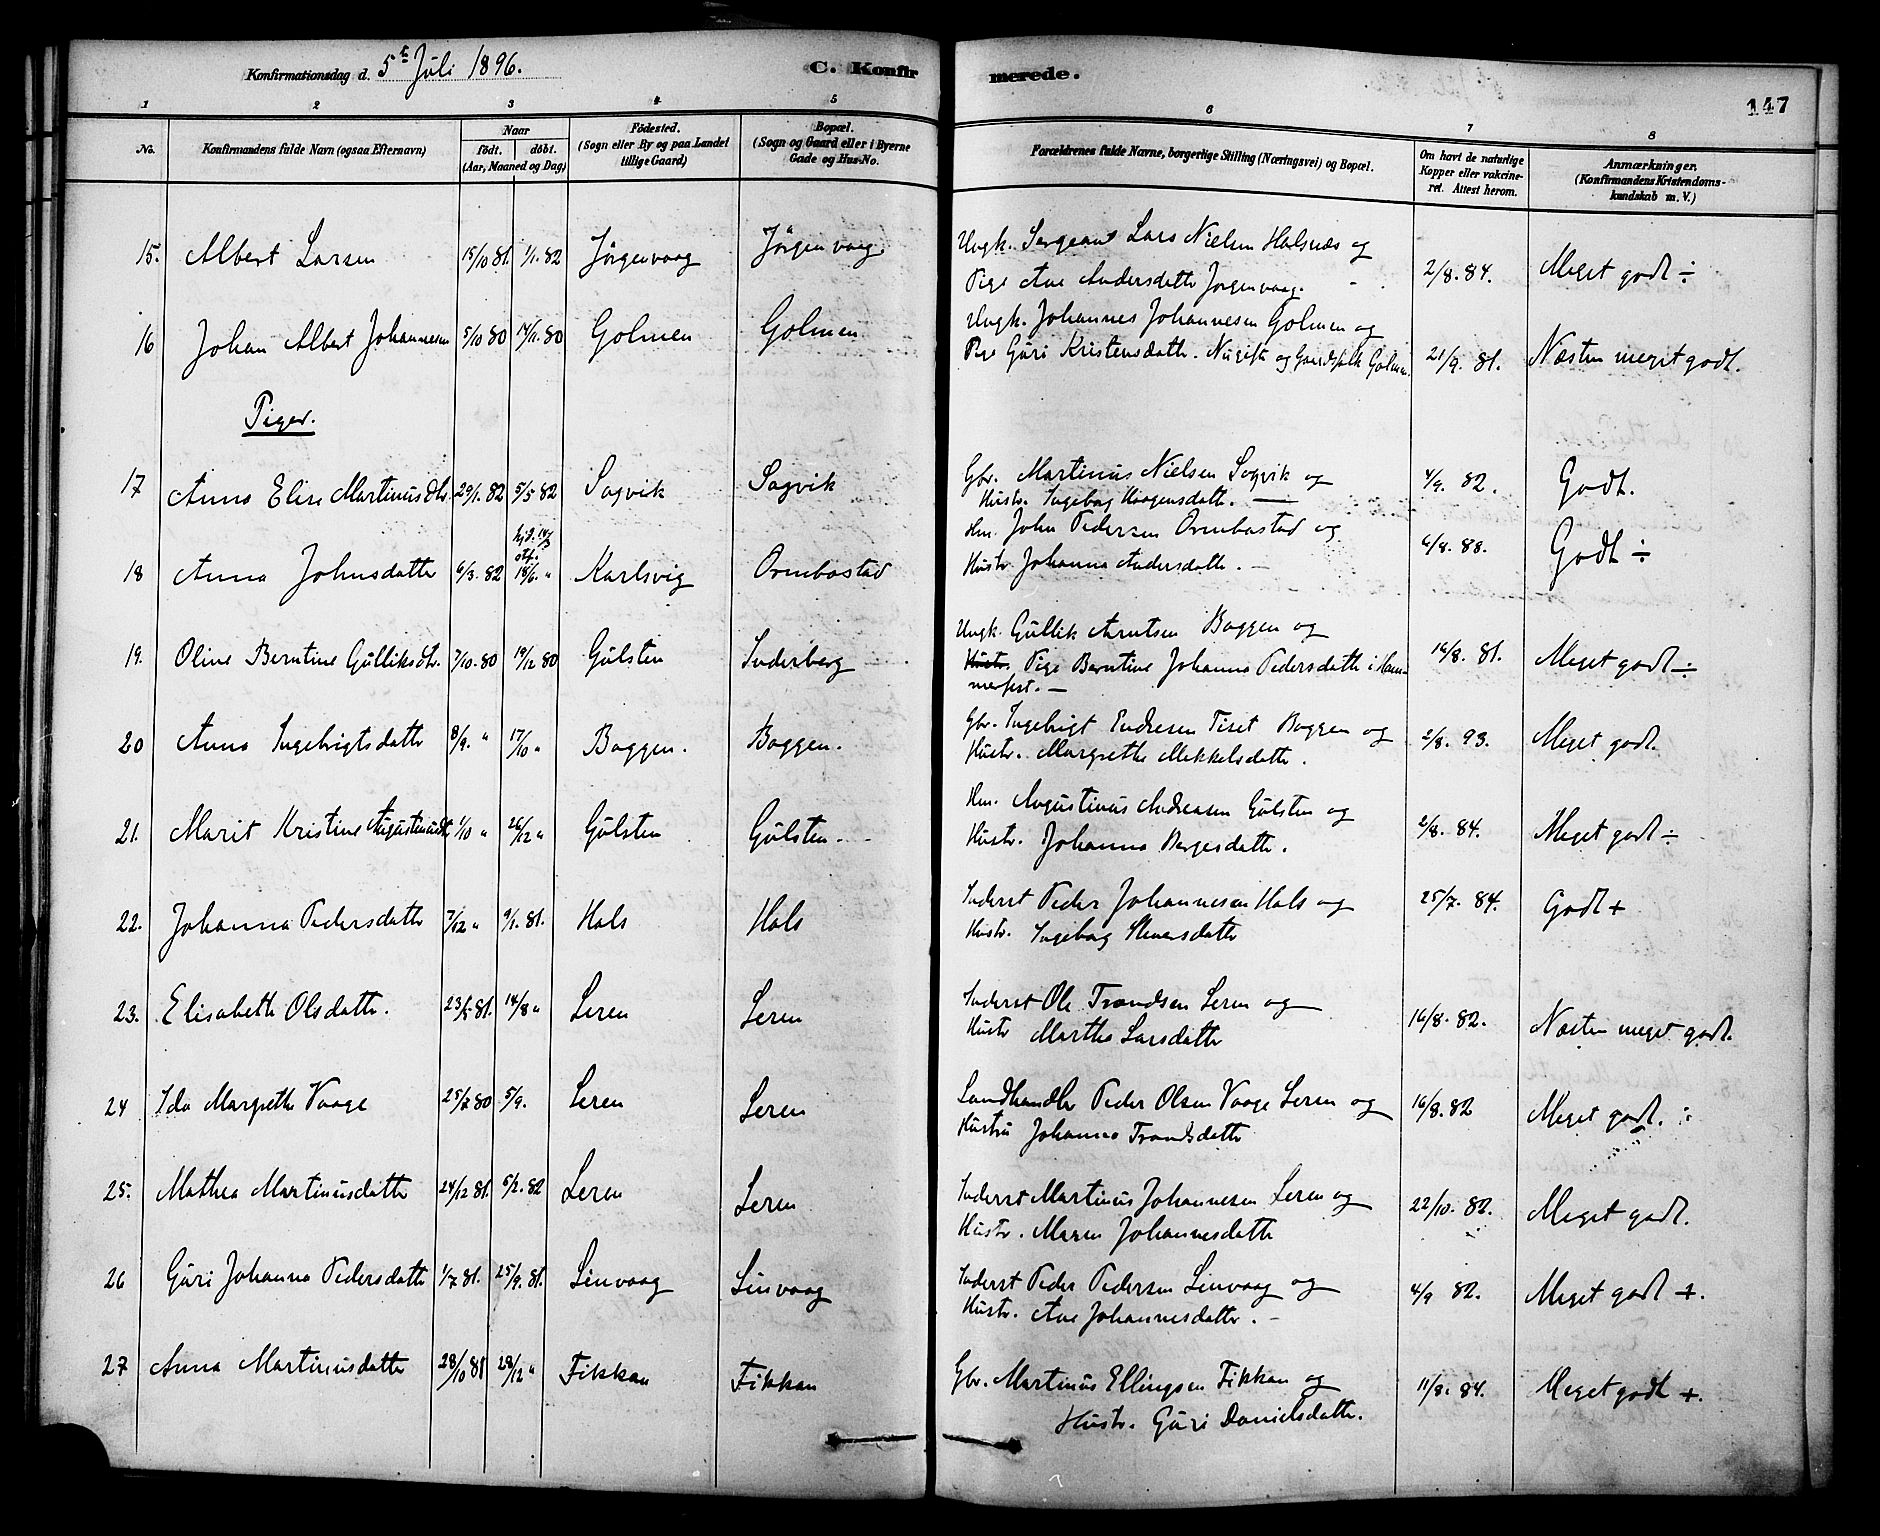 Konfirmationsdag d. 5te Juli 1896.
C. Konfirmerede.
147
1 2 3 4 5 6 7 8
No.
Konfirmandens fulde Navn (ogsaa Efternavn)
Naar
födt. döbt.
(Aar, Maaned og Dag)
Födested.
(Sogn eller By og paa Landet
tillige Gaard)
Bopæl.
(Sogn og Gaard eller i Byerne
Gade og Hus-No.
Forældrenes fulde Navne, borgerlige Stilling (Næringsvei) og Bopæl.
Om havt de naturlige
Kopper eller vakcine-
ret. Attest herom.
Anmærkninger.
(Konfirmandens Kristendoms-
kundskab m. V.)
15. Albert Larsen 15/10 81. 1/1. 82 Jørgenvaag Jørgenvaag Ungk. Sergeant Lars Nielsen Halsnæs og
Pige Ane Andersdatter Jørgenvaag. 2/8. 84. Meget godt ÷
16 Johan Albert Johannesen 5/10 80 14/11. 80 Golmen Golmen Ungk. Johannes Johannesen Golmen og
Pige Guri Kristensdatter. Nu gifte og Gaardfolk Golmen. 21/9. 81. Næsten meget godt.
Piger.
17 Anna Elise Martinusdtr. 29/1. 82 5/5 82 Sagvik Sagvik Gbr. Martinus Nielsen Sagvik og
Hustr. Ingeborg Haagensdatter. — 4/9. 82. Godt.
18 Anna Johnsdatter 6/3. 82 hjd. 14/3 stf. 18/6. " Karlsvig Ormbostad Hm. John Pedersen Ormbostad og
Hustr. Johanna Andersdatter. — 6/8. 88. Godt ÷
19. Oline Berntine Gulliksdtr. 7/10. 80 19/12 80 Gulsten Inderberg Ungk. Gullik Arntsen Baggen og
Hustr. Pige Berntine Johanna Pedersdatter i Ham-
merfest. — 16/8. 81. Meget godt ÷
20 Anna Ingebrigtsdatter 8/9. " 17/10 " Baggen. Baggen. Gbr. Ingebrigt Endresen Tiset Baggen og
Hustr. Margrethe Mikkelsdatter. 2/8. 93. Meget godt.
21. Marit Kristine Augustinusdtr 1/10 " 26/12 " Gulsten Gulsten. Hm. Augustinus Andreasen Gulsten og
Hustr. Johanna Børgesdatter. 2/8. 84. Meget godt ÷
22. Johanna Pedersdatter 7/12 " 9/1. 81. Hals Hals Inderst Peder Johannesen Hals og
Hustr. Ingeborg Steuersdatter 25/7. 84. Godt +
23. Elisabeth Olsdatter. 23/5 81. 14/8 " Leren Leren Inderst Ole Trondsen Leren og
Hustr Marthe Larsdatter 16/8. 82. Næsten meget godt.
24 Ida Margrethe Vaage 25/7 80 5/9. Leren Leren Landhandler Peder Olsen Vaage Leren og
Hustru Johanna Trondsdatter 16/8. 82 Meget godt. ÷
25. Mathea Martinusdatter 24/12 81. 5/2. 82 Leren Leren Inderst Martinus Johannesen Leren og
Hustr. Maren Johannesdatter 22/10. 82. Meget godt.
26 Guri Johanna Pedersdatter 1/7 81. 25/9. 81. Linvaag Linvaag Inderst Peder Pedersen Linvaag og
Hustr. Ane Johannesdatter. — 4/9 82. Meget godt +.
27 Anna Martinusdatter 28/10 81 28/12 " Fikkan Fikkan Gbr. Martinus Ellingsen Fikkan og
Hustr. Guri Danielsdatter. 11/8. 84. Meget godt +.